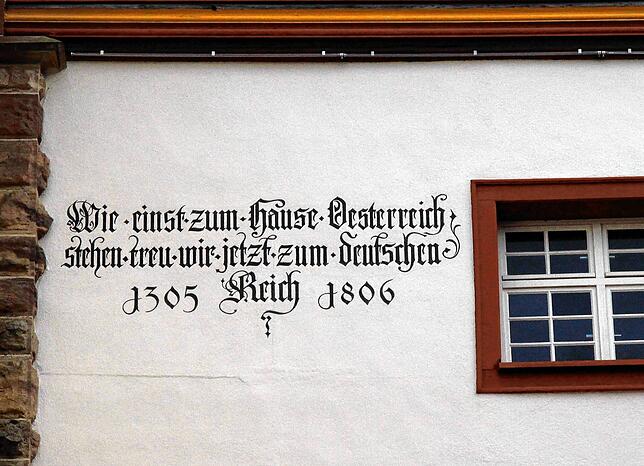 Wie · einst · zum · Hause · Oesterreich
stehen · treu · wir · jetzt · zum · deutschen
1305 Reich 1806